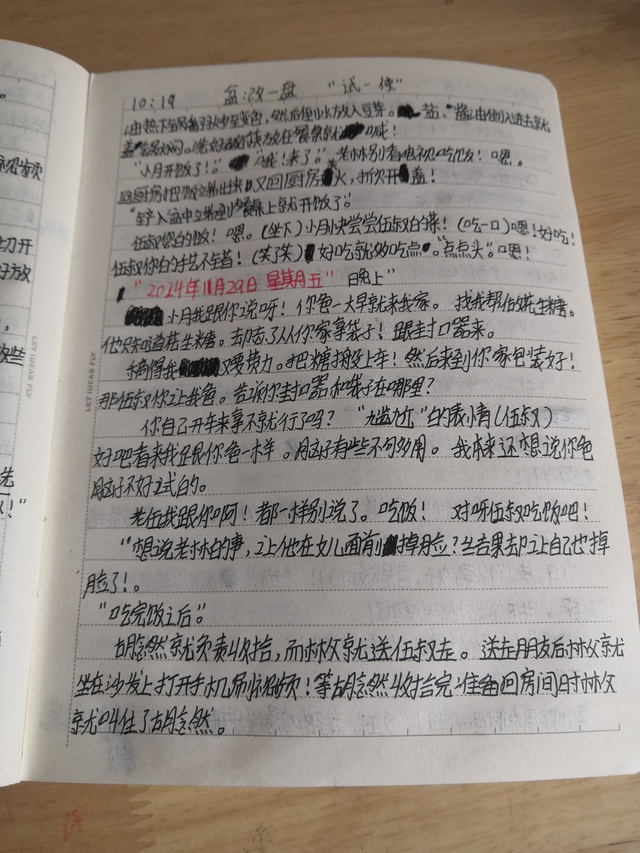 10:19 盆:改一盘 "试一使"
油热下
盐、酱油倒入进去就
"小月开饭了!" 来了!" 老林别看电视吃饭! 嗯。
回厨房把饭立端出来,又回厨房 火,折次开 盖!
上就开饭了"
伍叔您的饭! 嗯。(坐下) 小月快尝尝伍叔的菜! (吃一口) 嗯! 好吃!
伍叔你的手艺不错! (笑了笑) 好吃就多吃点。"点点头"。嗯!
"2024年11月29日 星期五" 日晚上"
小月我跟你说呀! 你爸一大早就来我家。 找我帮做花生糖。
他只知道花生糖。却忘了从你家拿袋子! 跟封口器来。
搞得我 又要费力。把糖搬上车! 然后来到你家包装好!
那伍叔你让我爸。告诉你封口器和袋子在哪里?
你自己开车来拿不就行了吗? "尴尬"的表情(伍叔)
好吧看来我是跟你爸一样。脑子有些不句多用。 我本来还想说你爸
脑子不好之式的。
老伍我跟你啊! 都一样别说了。吃饭! 对呀伍叔吃饭吧!
"想说老林的事,让他在女儿面前 掉脸? 结果却让自己也掉
脸了!。
"吃完饭之后"
胡会然就负责收拾,而林父就送伍叔走。 送走朋友后林父就
坐在沙发上打开手机刷视频! 等胡会然收拾完准备回房间时林父
就叫住了胡会然。
LET IDEAS FLY